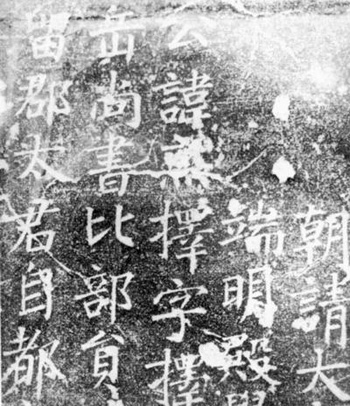 朝請大
端明殿
公諱擇字擇
岳尚書比部貟
留郡太君自都